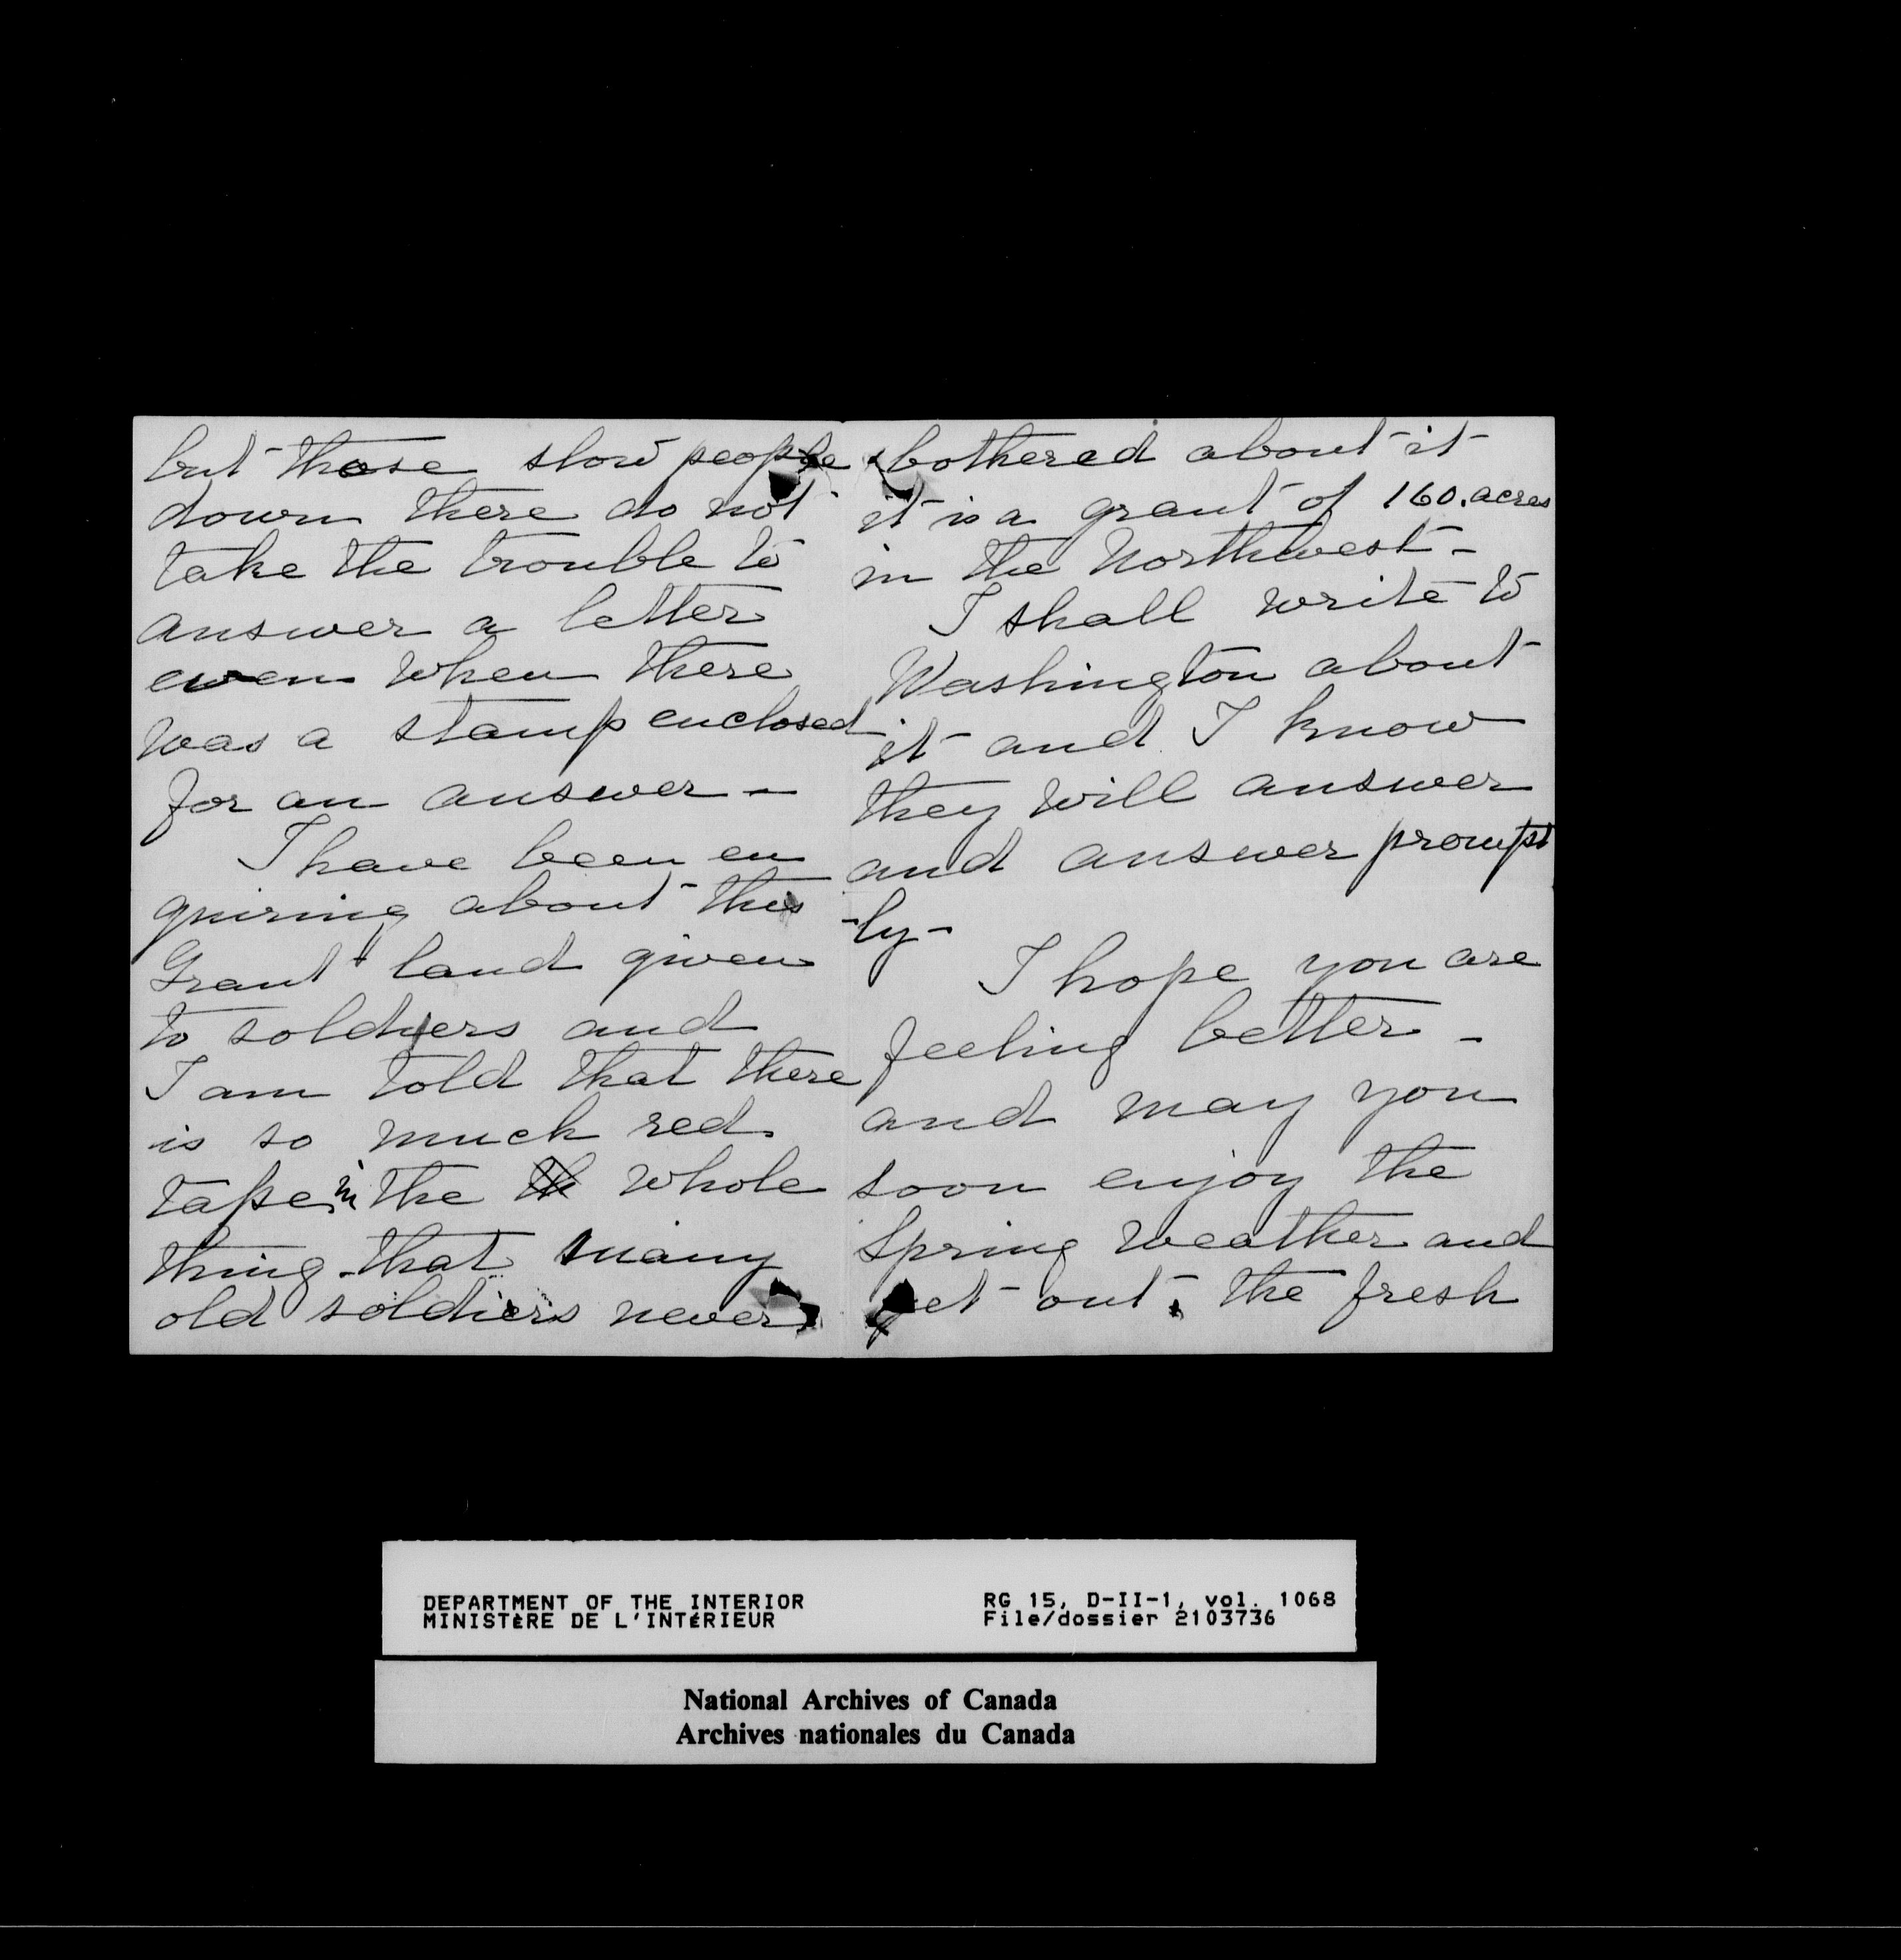 but those slow people
down there do not
take the trouble to
answer a letter
even when there
was a stamp enclosed
for an answer -
I have been en
quiring about this
Grant land given
to soldiers and
I am told that there
is so much red
tape in the whole
thing - that many
old soldiers never
bothered about it
it is a grant of 160. acres
in the Northwest -
I shall write to
Washington about
it and I know
they will answer
and answer prompt
-ly-
I hope you are
feeling better -
and may you
soon enjoy the
Spring weather and
get out. the fresh
DEPARTMENT OF THE INTERIOR
MINISTÈRE DE L'INTÉRIEUR
RG 15, D-II-1, vol. 1068
File/dossier 2103736
National Archives of Canada
Archives nationales du Canada